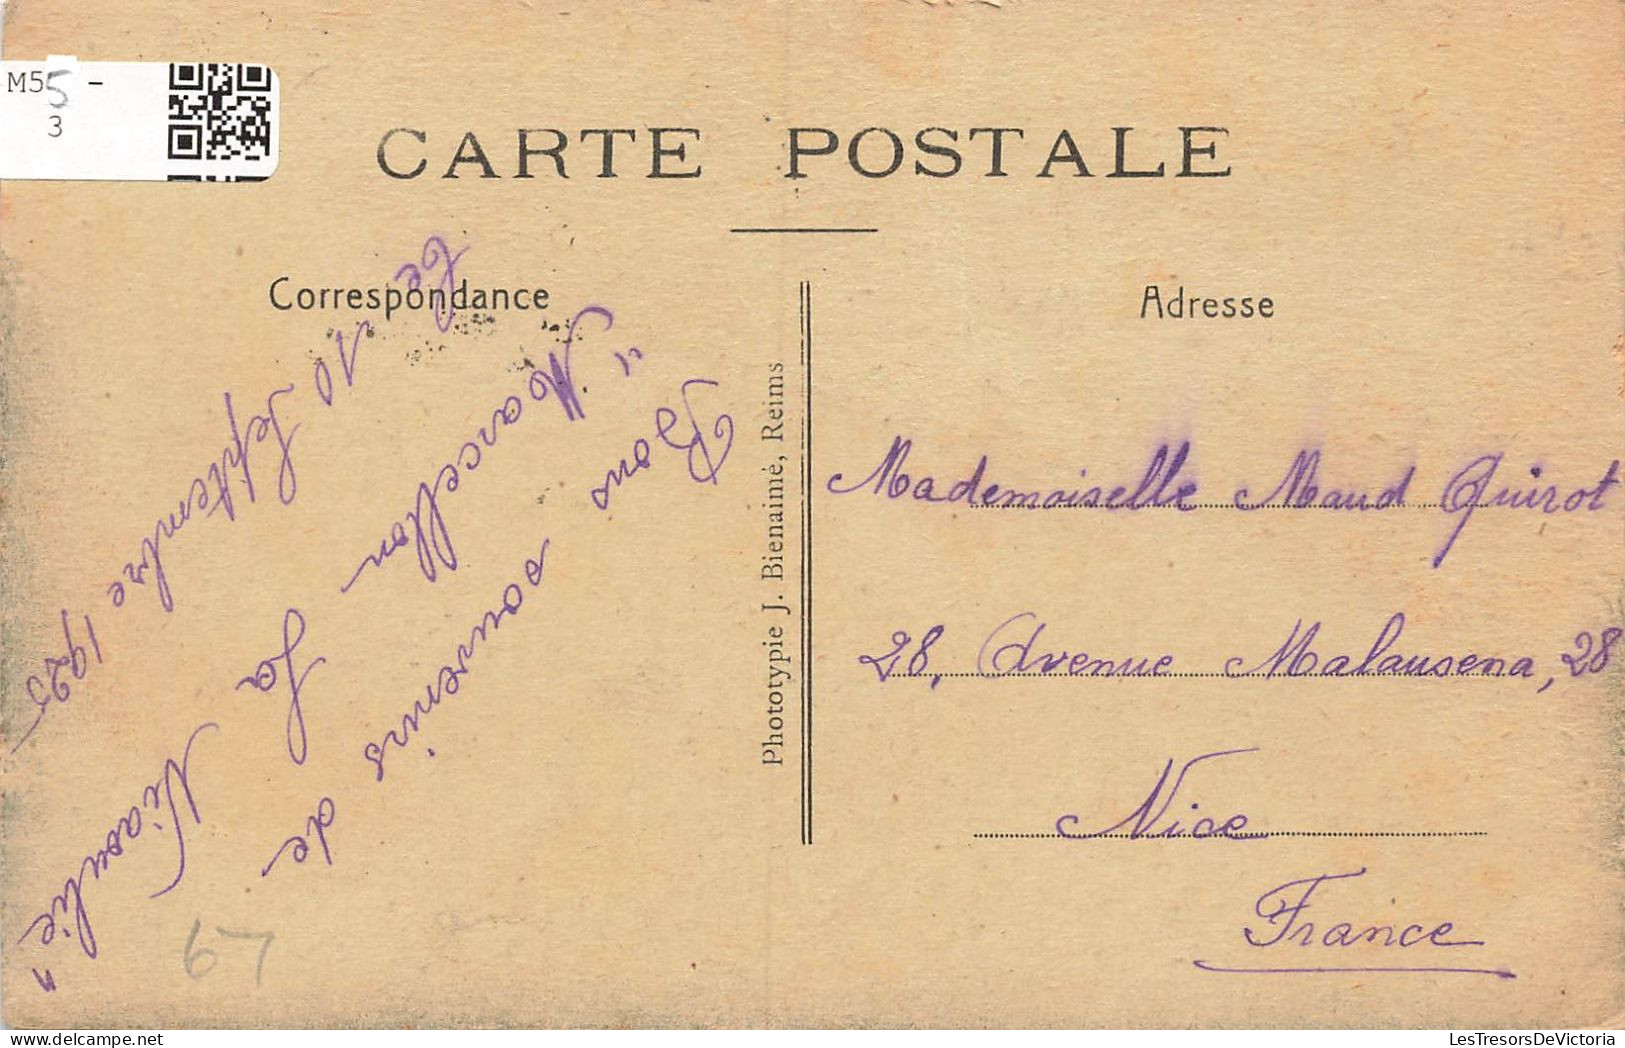 M55 -
3
CARTE POSTALE
Correspondance
Adresse
Le
10 Septembre 1925
Bons souvenirs de
"Marcellon
La
Niaoulie"
Phototypie J. Bienaimé, Reims
Mademoiselle Maud Quirot
28, Avenue Malausena, 28
Nice
France
67
LesTresorsDeVictoria